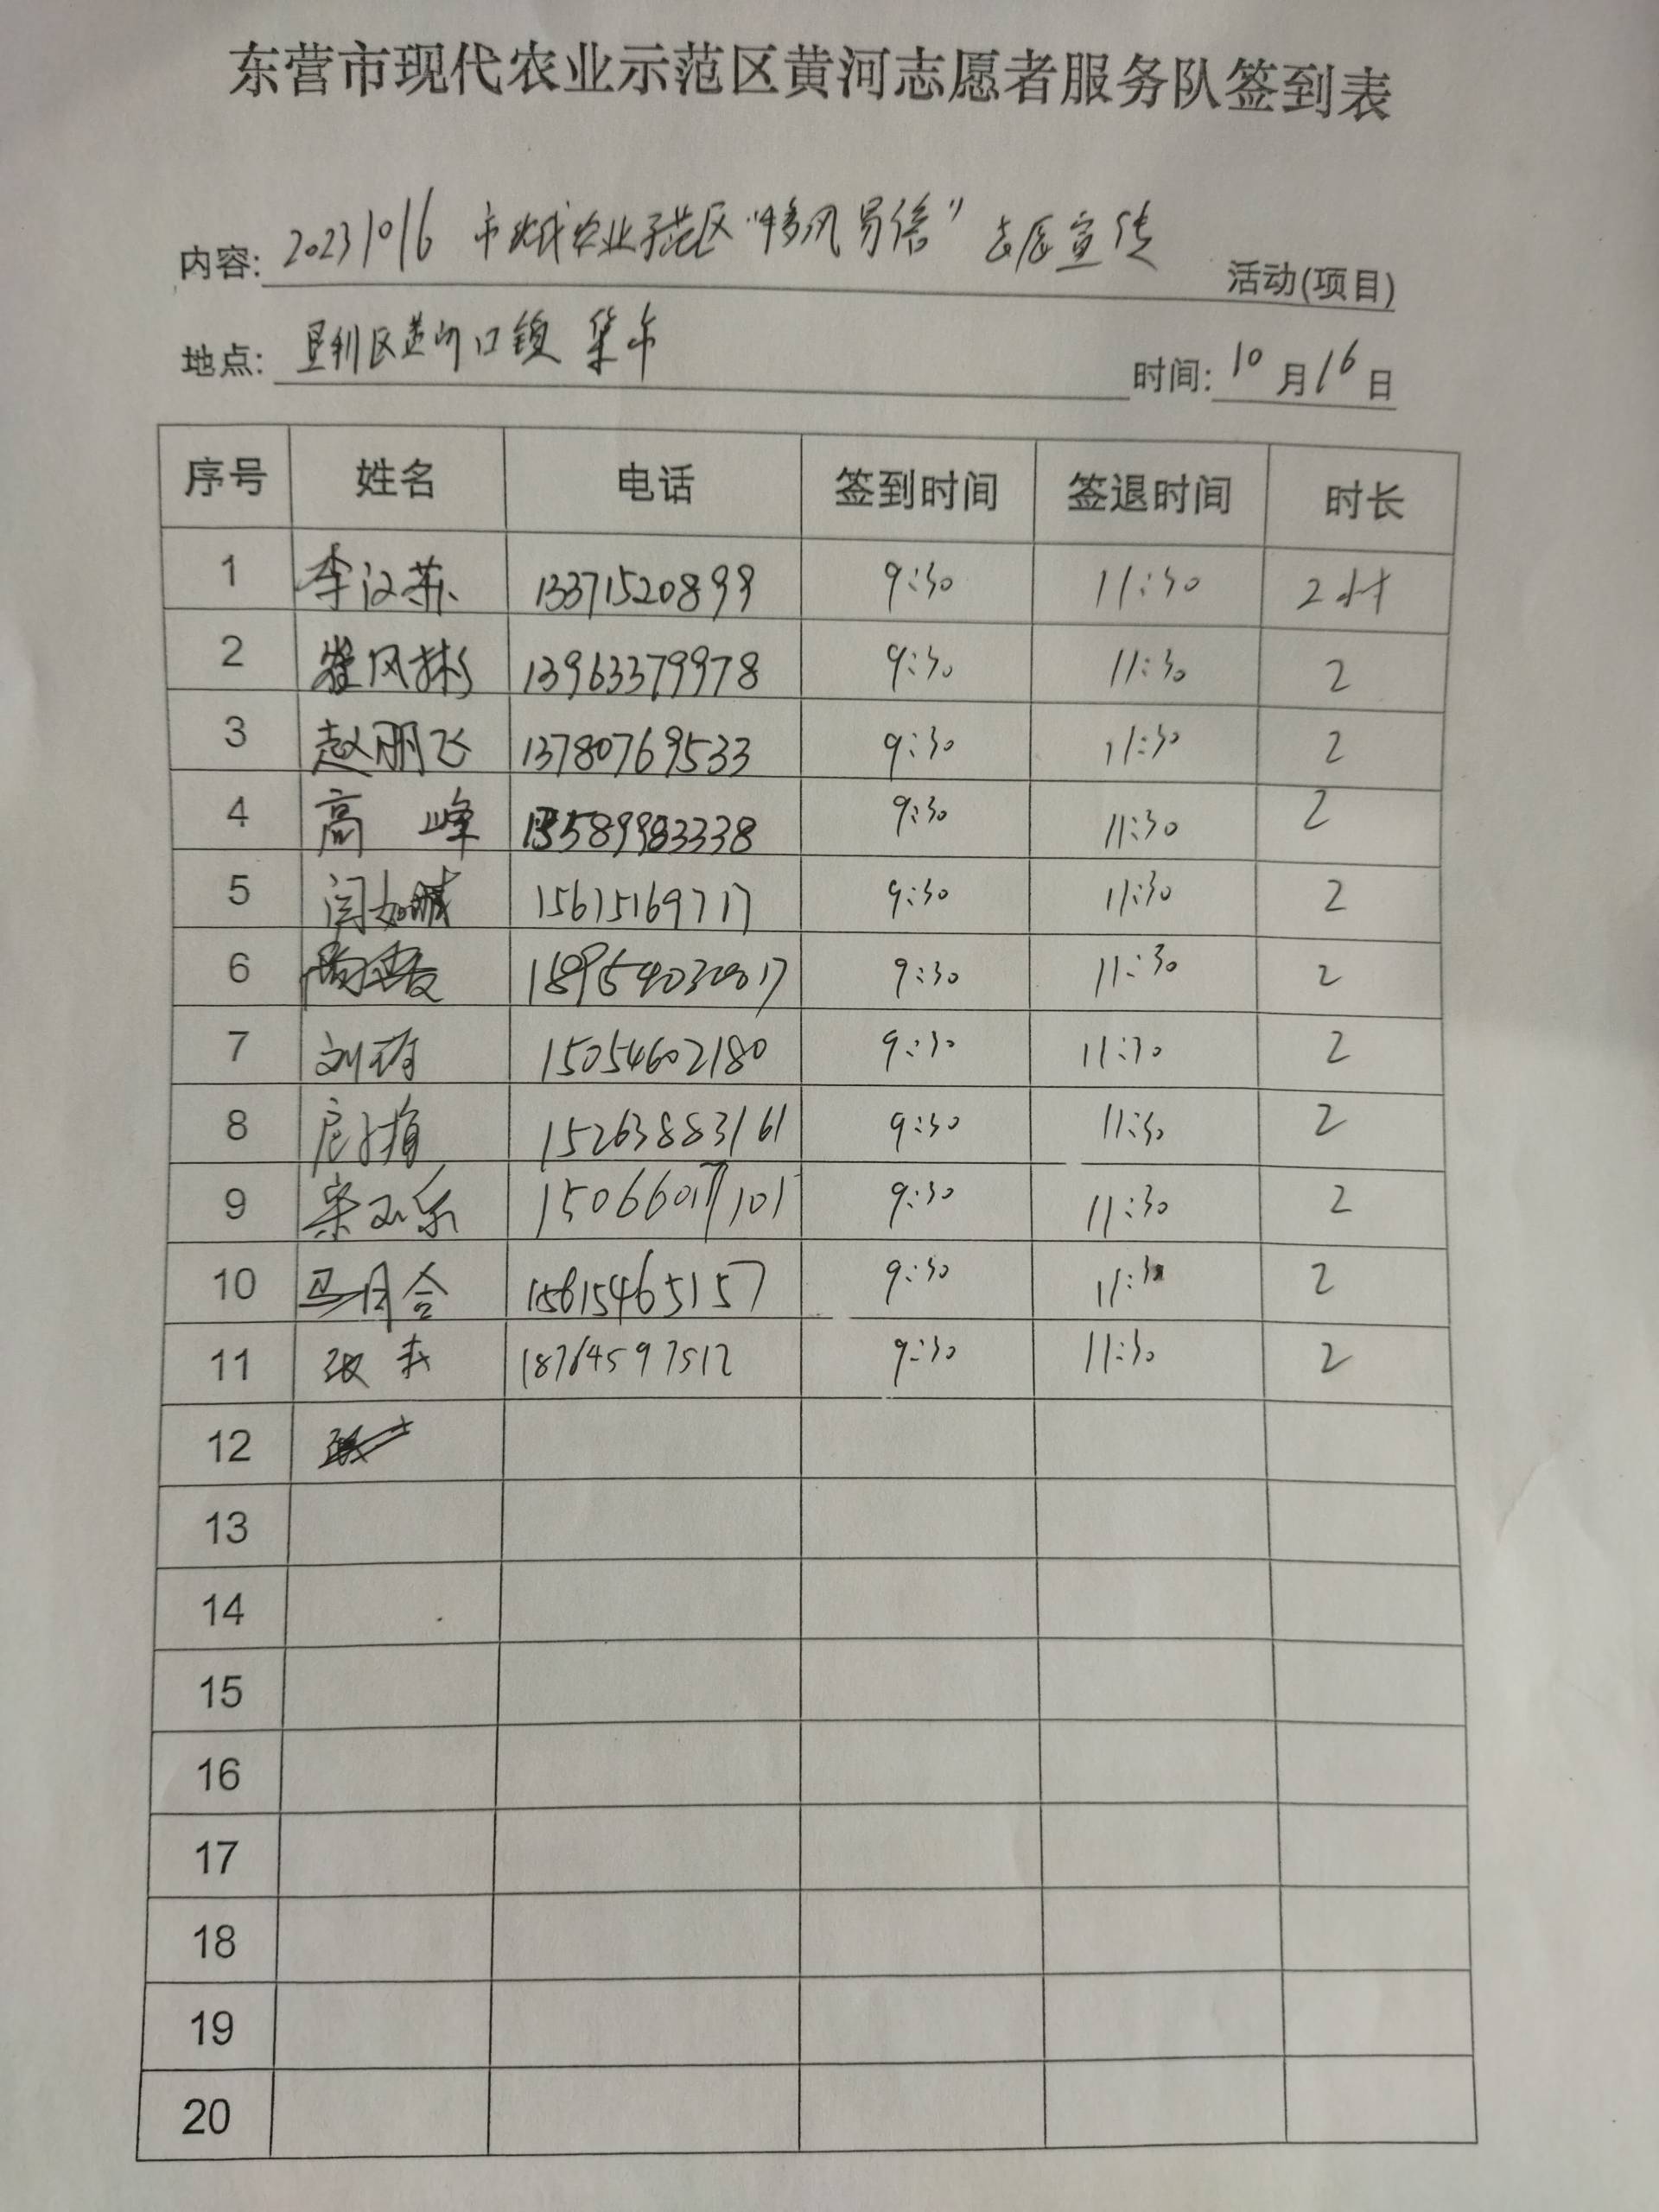 东营市现代农业示范区黄河志愿者服务队签到表
内容: 20231016 市现代农业示范区“移风易俗”志愿宣传 活动(项目)
地点: 垦利区黄河口镇 集市 时间: 10月16日
序号 姓名 电话 签到时间 签退时间 时长
1 李汉苏 13371520899 9:30 11:30 2小时
2 崔风彬 13963379978 9:30 11:30 2
3 赵丽飞 13780769533 9:30 11:30 2
4 高峰 13589983338 9:30 11:30 2
5 闫如 15615169717 9:30 11:30 2
6 9:30 11:30 2
7 刘 15054602180 9:30 11:30 2
8 15263883161 9:30 11:30 2
9 宋 15066017101 9:30 11:30 2
10 马月合 15615465157 9:30 11:30 2
11 18764597512 9:30 11:30 2
12
13
14
15
16
17
18
19
20